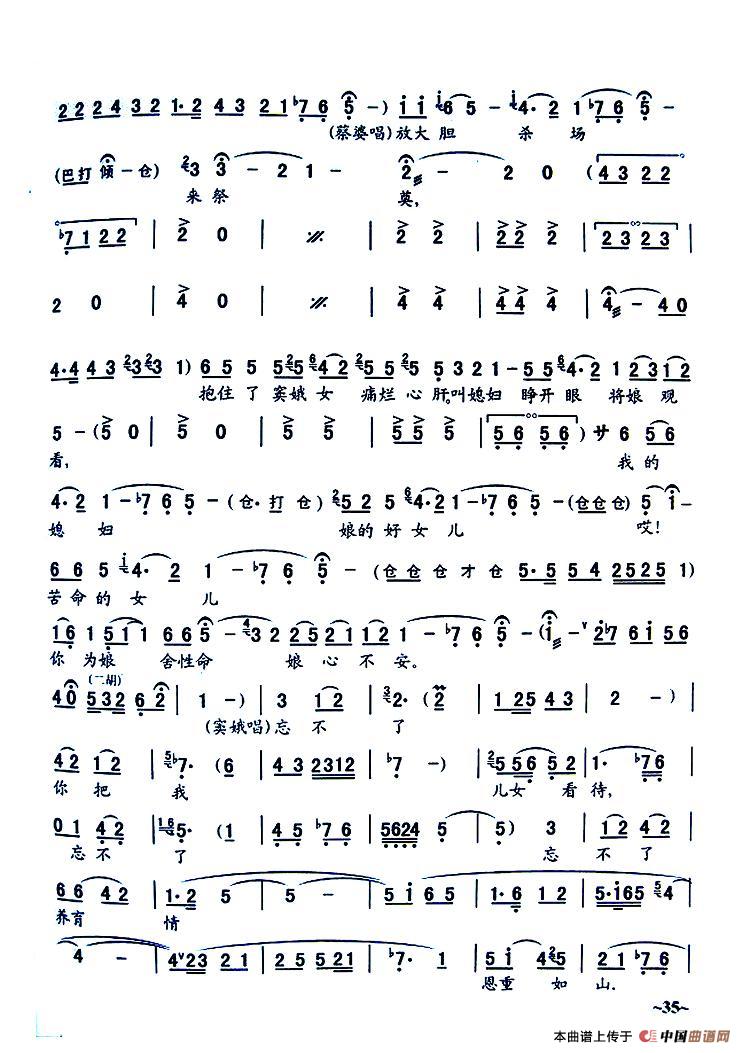 2 2 2 4 3 2 1· 2 4 3 2 1 ♭7 6 5 – ) i i 6 5 – 4· 2 1 ♭7 6 5 –
(蔡婆唱)放大 胆 杀 场
(巴打 倾 – 仓) 3 3 – 2 1 – 2 – 2 0 (4 3 2 2
来祭 莫,
♭7 1 2 2 | 2 0 | | 2 2 | 2 2 2 2 | 2 3 2 3 |
2 0 | 4 0 | | 4 4 | 4 4 4 4 | 4 – 4 0
4· 4 4 3 3 3 1) 6 5 5 5 4 5 5 5 5 3 2 1 – 5 5 4· 2 1 2 3 1 2
抱住 了 窦娥 女 痛烂 心 肝。叫媳妇 睁开 眼 将娘 观
5 – (5 0 | 5 0 | 5 5 | 5 5 5 5 | 5 6 5 6 | サ 6 5 6
看, 我的
4· 2 1 – ♭7 6 5 – (仓· 打 仓) 5 2 5 4· 2 1 – ♭7 6 5 – (仓仓仓) 5 i –
媳 妇 娘的 好 女 儿 哎!
6 6 5 4· 2 1 – ♭7 6 5 – (仓 仓 仓 才 仓 5· 5 5 4 2 5 2 5 1)
苦命 的 女 儿
1 6 1 5 1 6 6 5 – 3 2 2 5 2 1 1 2 1 – ♭7 6 5 – (i – 2 ♭7 6 i 5 6
你 为娘 舍性命 娘 心 不 安。
(二胡)
4 0 5 3 2 6 2 | 1 – ) | 3 1 2 | 2· (2 | 1 2 5 4 3 | 2 – ) |
(窦娥唱)忘 不 了
4 2 1 2 | ♭7· (6 | 4 3 2 3 1 2 | ♭7 – ) | 5 5 6 5 2 | 1· ♭7 6 |
你 把 我 儿女 看 待,
0 1 4 2 | 5· (1 | 4 5 ♭7 6 | 5 6 2 4 5 | 5) 3 | 1 2 4 2 |
忘不 了 忘 不了
6 6 4 2 | 1· 2 5 | 5 – | 5 i 6 5 | 1· 6 1 2 | 5· i 6 5 4 |
养育 情
4 – | 4 2 3 2 2 | 2 5 5 2 1 | ♭7· 1 | 5 i 4 5 | 2 ♭7 6 |
恩重 如 山.
~35~
本曲谱上传于 中国曲谱网